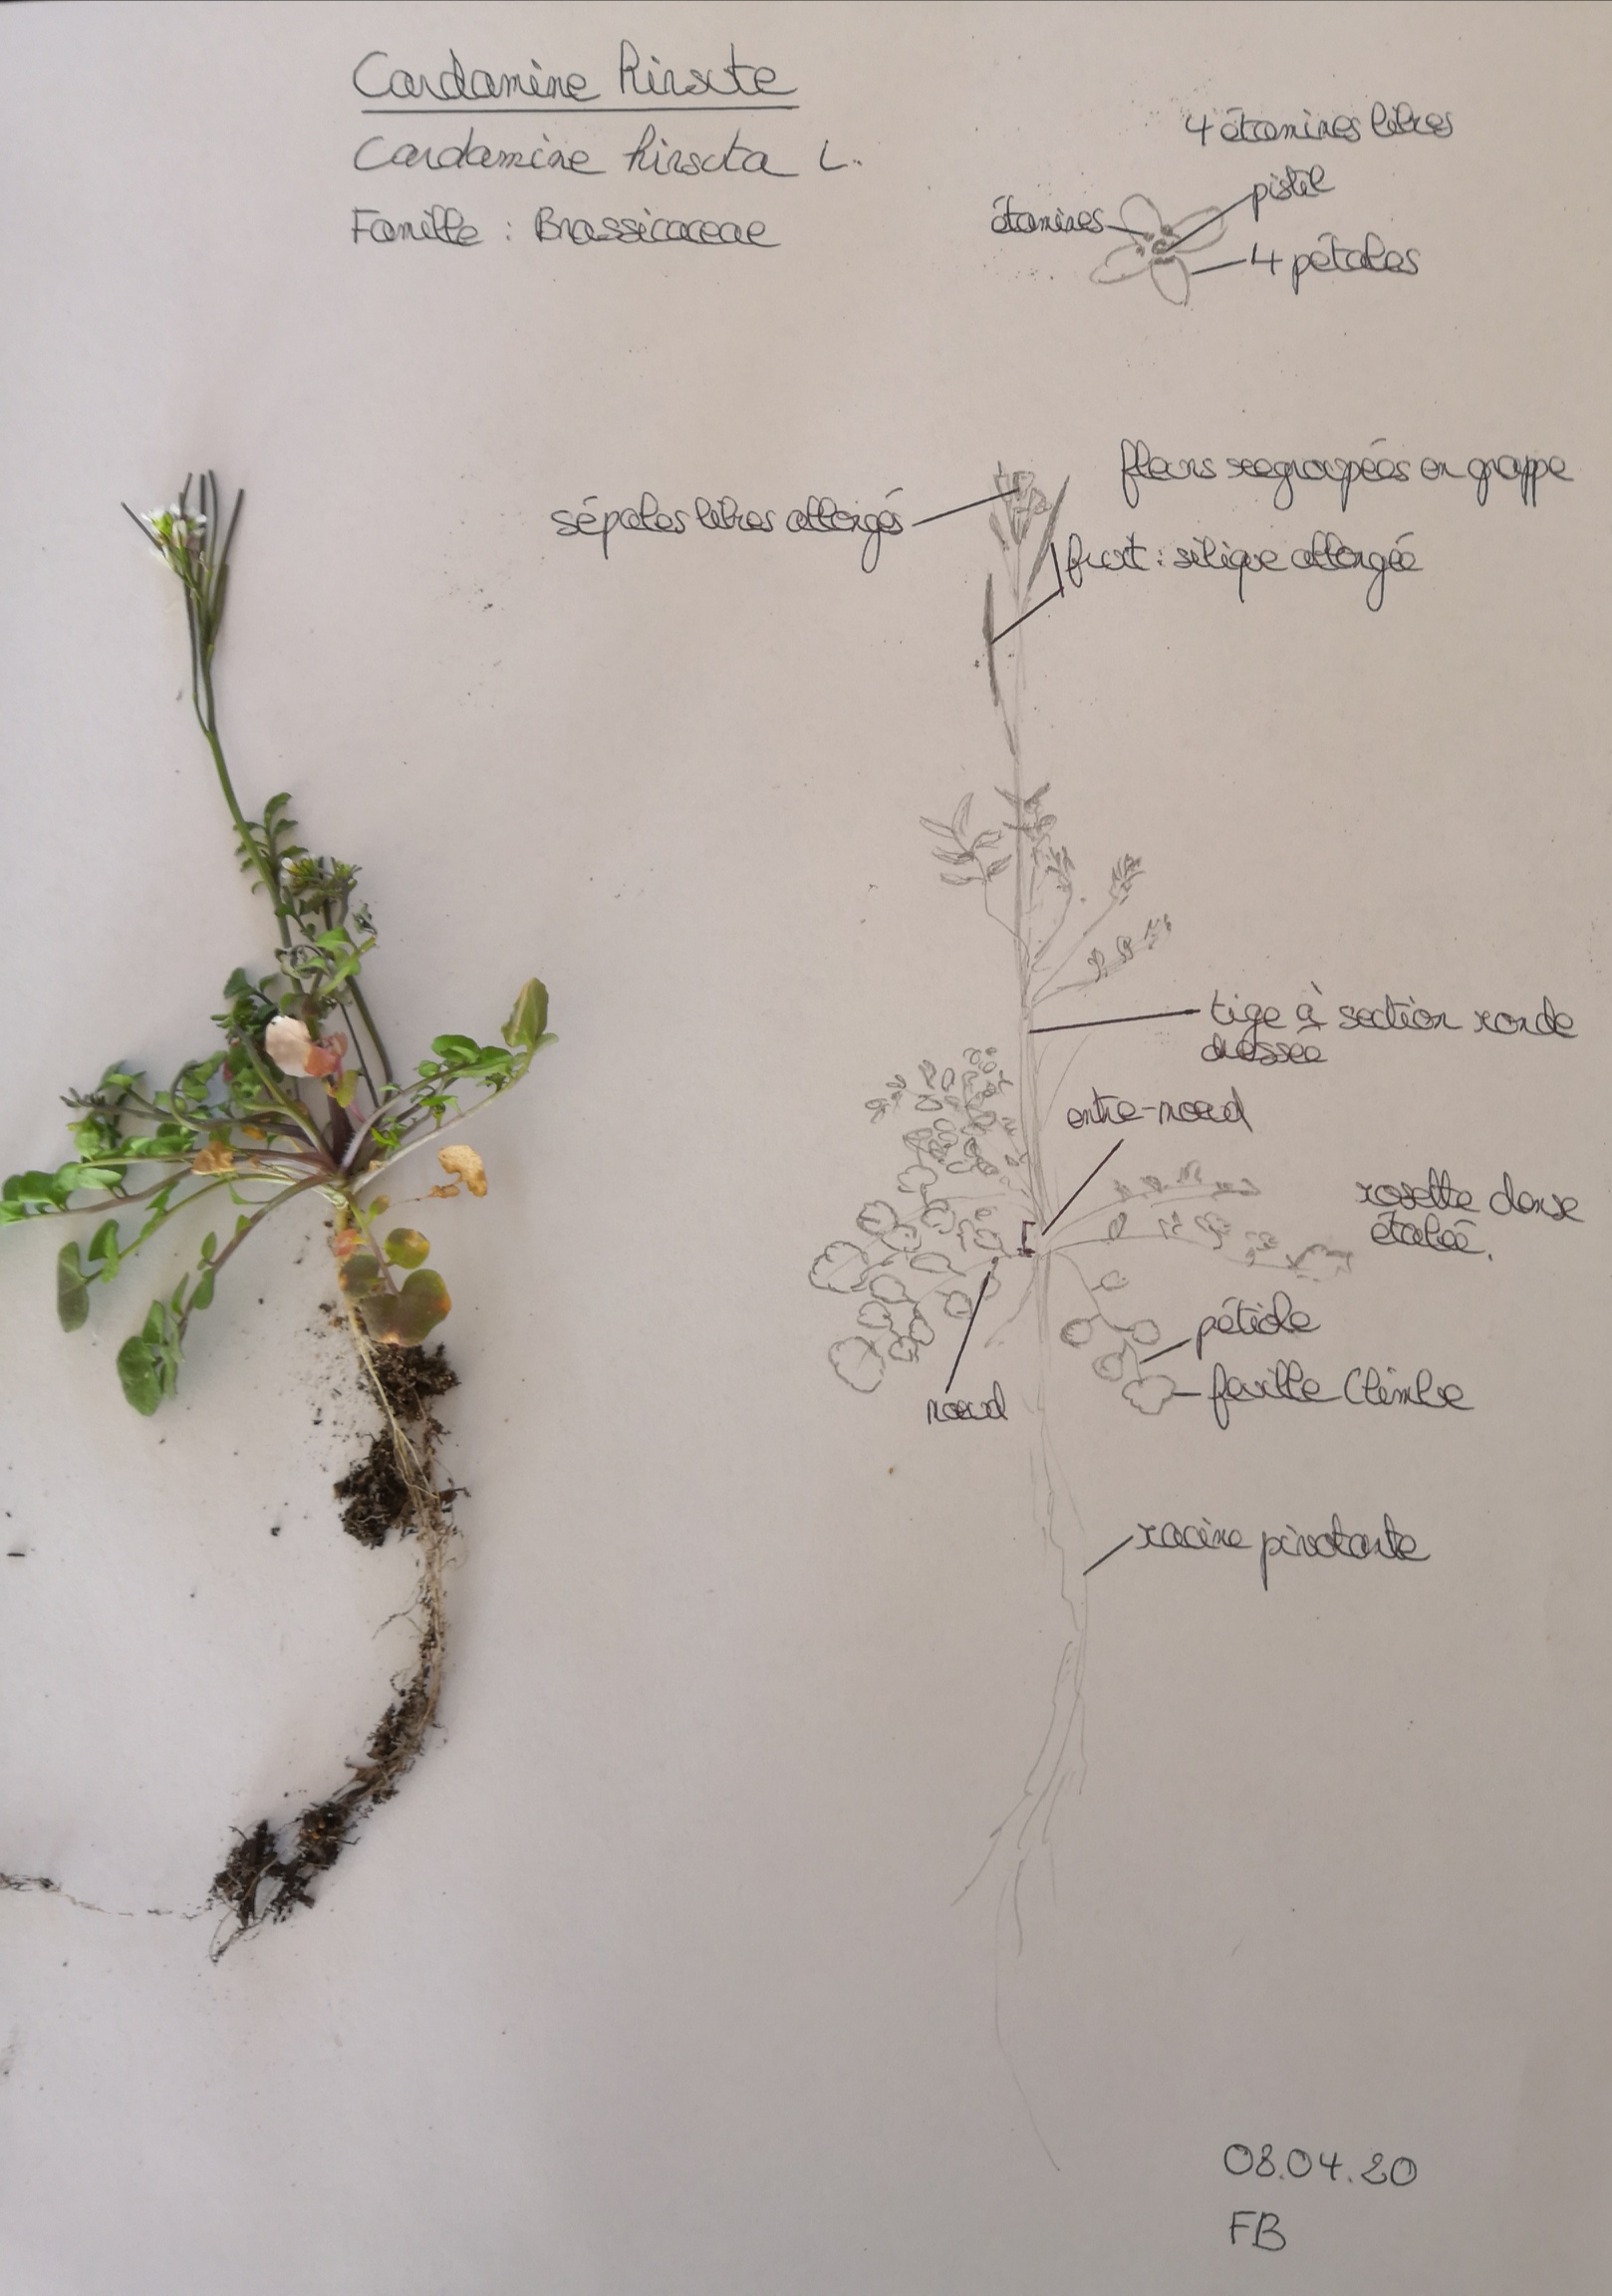 Cardamine hirsute
Cardamine hirsuta L.
Famille : Brassicaceae
4 étamines libres
pistil
étamines
4 pétales
fleurs regroupées en grappe
sépales libres allongés
fruit : silique allongée
tige à section ronde
dressée
entre-nœud
rosette dense
étalée.
pétiole
feuille (limbe
nœud
racine pivotante
08.04.20
FB